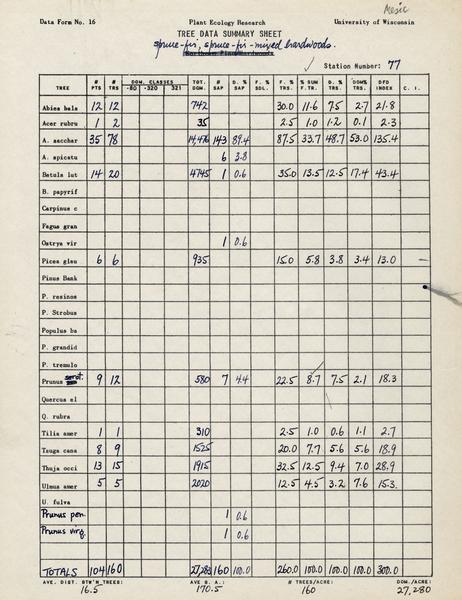 Mesic
Data Form No. 16 Plant Ecology Research University of Wisconsin
TREE DATA SUMMARY SHEET
spruce-fir, spruce-fir-mixed hardwoods.
Station Number: 77
TREE # PTS # TRS DOM. CLASSES -80 -320 321 TOT. DOM. # SAP D. % SAP F. % SDL. F. % TRS. % SUM F.TR. D. % TRS. DOM% TRS. DFD INDEX C. I.
Abies bals 12 12 742 30.0 11.6 7.5 2.7 21.8
Acer rubru 1 2 35 2.5 1.0 1.2 0.1 2.3
A. sacchar 35 78 14,476 143 89.4 87.5 33.7 48.7 53.0 135.4
A. spicatu 6 3.8
Betula lut 14 20 4745 1 0.6 35.0 13.5 12.5 17.4 43.4
B. papyrif
Carpinus c
Fagus gran
Ostrya vir 1 0.6
Picea glau 6 6 935 15.0 5.8 3.8 3.4 13.0 -
Pinus Bank
P. resinos
P. Strobus
Populus ba
P. grandid
P. tremulo
Prunus serot. 9 12 580 7 4.4 22.5 8.7 7.5 2.1 18.3
Quercus el
Q. rubra
Tilia amer 1 1 310 2.5 1.0 0.6 1.1 2.7
Tsuga cana 8 9 1525 20.0 7.7 5.6 5.6 18.9
Thuja occi 13 15 1915 32.5 12.5 9.4 7.0 28.9
Ulmus amer 5 5 2020 12.5 4.5 3.2 7.6 15.3
U. fulva
Prunus pen. 1 0.6
Prunus virg. 1 0.6
TOTALS 104 160 27,283 160 100.0 260.0 100.0 100.0 100.0 300.0
AVE. DIST. BTW'N TREES: AVE B. A.: # TREES/ACRE: DOM./ACRE:
16.5 170.5 160 27,280